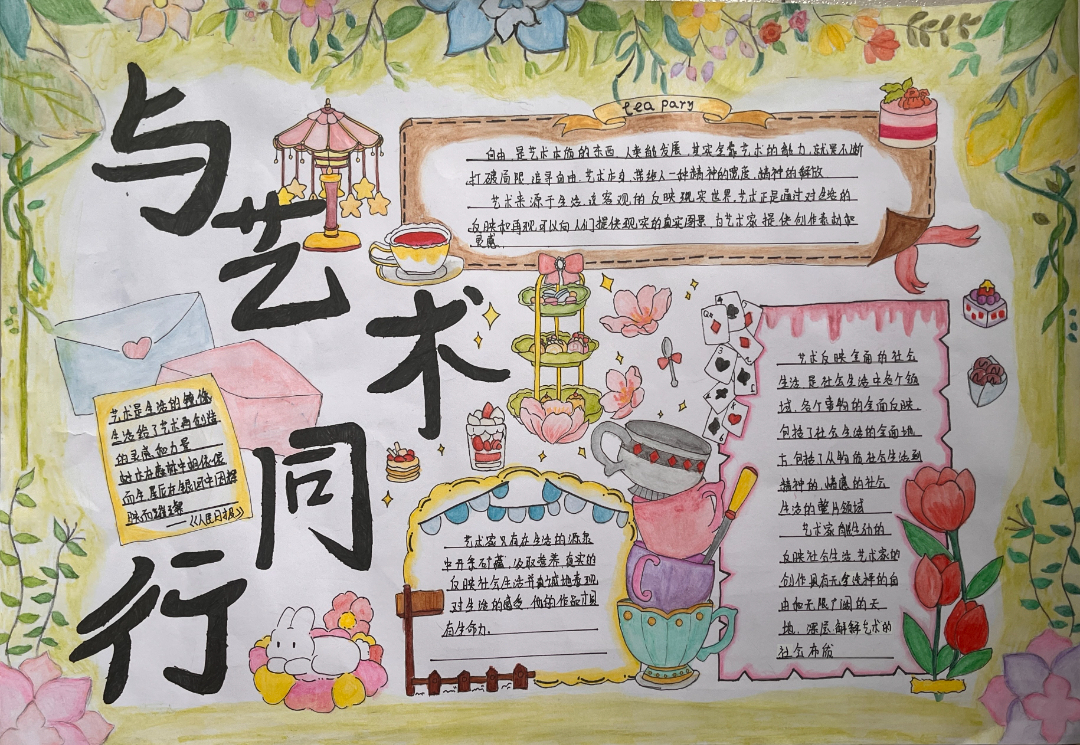 与艺术同行
tea pary
自由,是艺术本质的东西,人类能发展,其实全靠艺术的能力,就是不断
打破局限,追寻自由,艺术本身,带给人一种精神的宽度,精神的解放
艺术来源于生活,连客观的反映现实世界,艺术正是通过对生活的
反映和再现,可以向人们提供现实的真实图景,为艺术家提供创作
灵感
艺术是生活的镜像
生活给了艺术再创造
的灵感和力量
而
映而璀璨
——《人民日报》
艺术家只有在生活的源泉
中开采矿藏,汲取营养,真实的
反映社会生活,并真诚地表现
对生活的感受,他的作品才具
有生命力.
艺术反映全面的社会
生活,是社会生活中各个领
域,各个事物的全面反映.
包括了社会生活的全面地
上,包括了从物质社会生活到
精神的,情感的社会
生活的整片领域
艺术家能生动的
反映社会生活,艺术家的
创作具有无金选择的自
由和无限广阔的天
地.深层解释艺术的
社会本质
Q
4
3